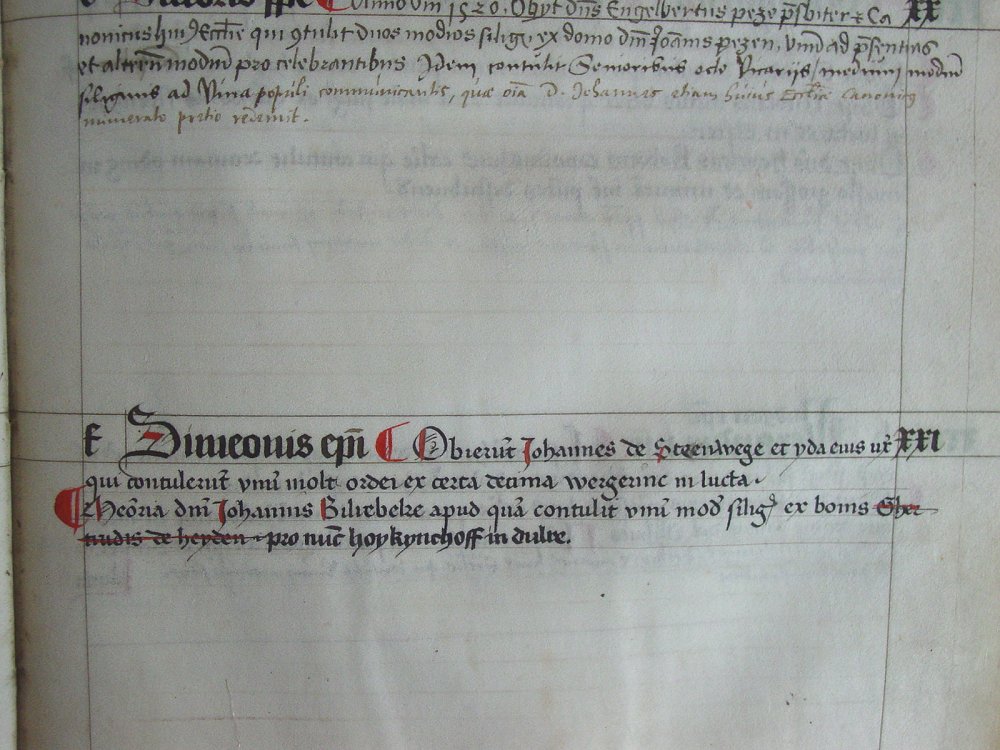 Anno dm 1520. Obyt dns Engelbertus peze psbiter & Ca XX
nonicus hui9 Ecctie qui 9tulit duos modios silig ex domo dni Joais pezen, vnu ad psentias
et alteru modiu pro celebrantibus Idem contulit Senioribus octo Vicarijs / medium modiu
siliginis ad Vina populi communicantis, quae oia D. Johannes etiam huius Ecclie Canonicus
numerato pretio redemit.
f Simeonis epi Obierut Johannes de Steenwege et yda eius vx XXI
qui contulerut vnu molt ordei ex certa decima wergerinc in lucta.
Meoria dni Johannis Biliebeke apud qua contulit vnu mod silig ex bonis Gher
trudis de heyden pro nuc hoykynchoff in dulre.